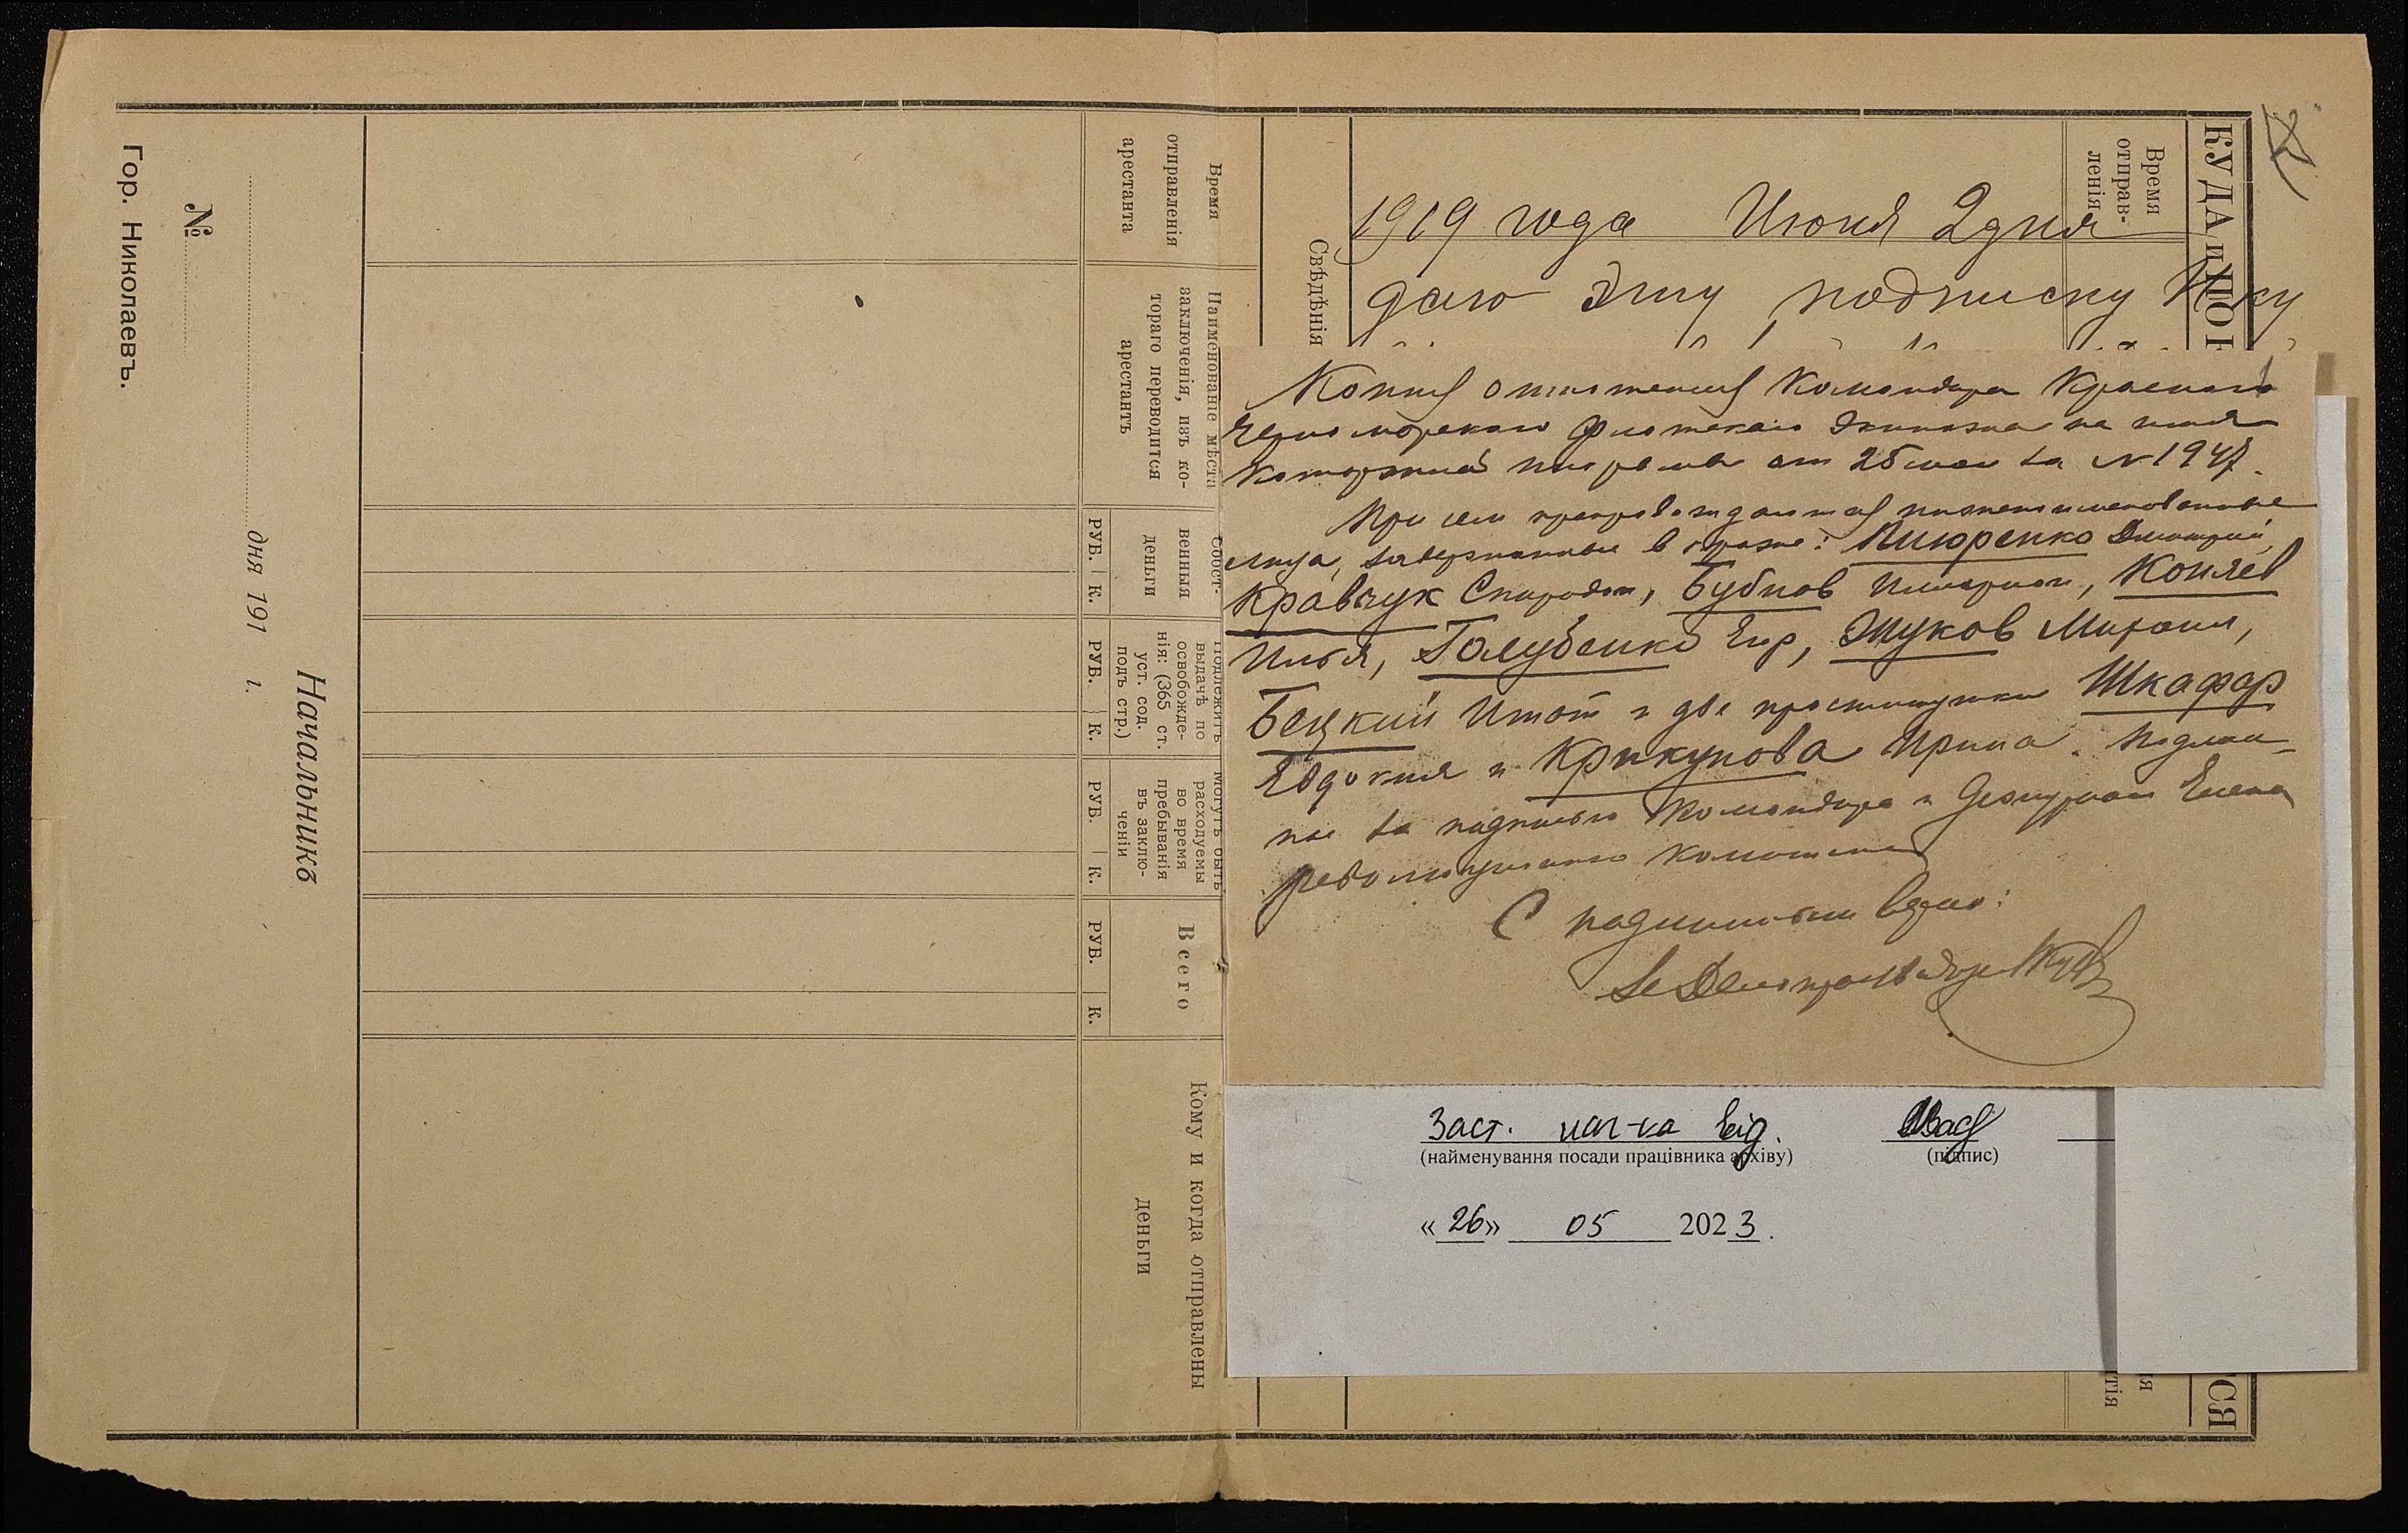 Гор. Николаевъ.
№
дня 191 г.
Начальникъ
Время
отправленія
арестанта
Наименованіе мѣста
заключенія, изъ ко-
тораго переводится
арестантъ
Собст-
венныя
деньги
РУБ. К.
Подлежитъ
выдачѣ по
освобожде-
нія: (365 ст.
уст. сод.
подъ стр.)
РУБ. К.
Могутъ быть
расходуемы
во время
пребыванія
въ заклю-
ченіи
РУБ. К.
Всего
РУБ. К.
Кому и когда отправлены
деньги
Свѣдѣнія
Время
отправ-
ленія
КУДА и
1919 года Июня 2 дня
даю эту подписку
Копия отношения Командира Красного
Черноморского Флотского Экипажа на имя
Каторжной тюрьмы от 25 мая за № 1947.
При сем препровождаются нижепоименованные
лица, задержанные в : Пиюренко Дмитрий,
Кравчук Спиридон, Бубнов Илларион, Копяев
Илья, Голубенко Егор, Жуков Михаил,
Бецкий Игнат и две проститутки Шкафар
Евдокия и Крикунова Ирина. Подлин-
ное за подписью Командира и Дежурного Члена
революционного комитета
С подлинным верно:
Заст. нач-ка від.
(найменування посади працівника архіву)
(підпис)
«26» 05 2023.